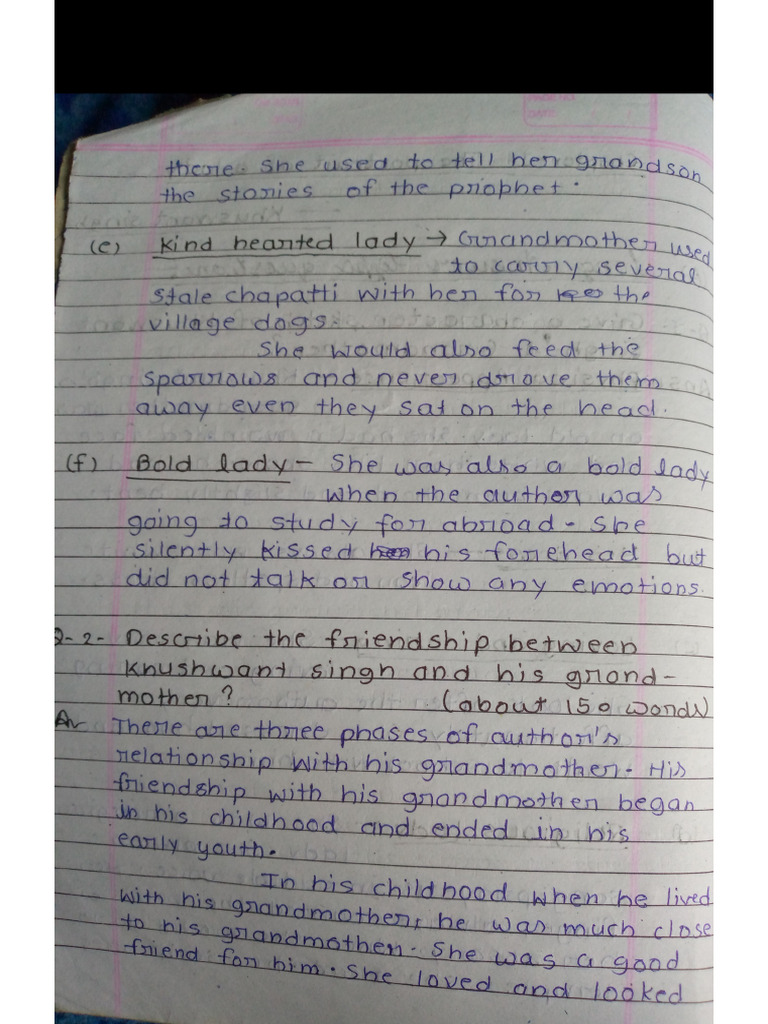 there. She used to tell her grandson
the stories of the prophet.
(e) Kind hearted lady → Grandmother used
to carry several
stale chapatti with her for the
village dogs.
She would also feed the
sparrows and never drove them
away even they sat on the head.
(f) Bold lady - She was also a bold lady
when the author was
going to study for abroad. She
silently kissed his forehead but
did not talk or show any emotions.
Q-2- Describe the friendship between
Khushwant Singh and his grand-
mother? (about 150 words)
A. There are three phases of author's
relationship with his grandmother. His
friendship with his grandmother began
in his childhood and ended in his
early youth.
In his childhood when he lived
with his grandmother, he was much close
to his grandmother. She was a good
friend for him. She loved and looked